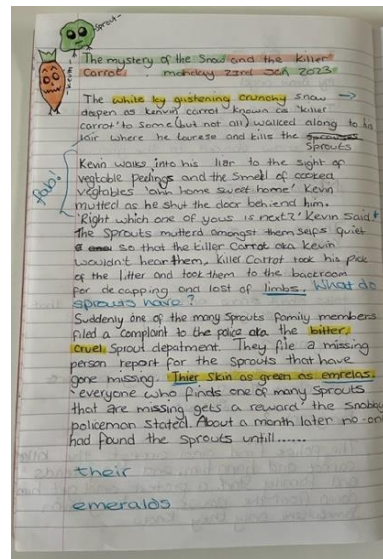 Sprout-
The mystery of the Snow and the killer
Carrot. monday 23rd Jan 2023
The white icy glistening crunchy snow
deepen as kenvin carrot known as 'killer
carrot' to some (but not all) walked along to his
lair where he tourese and kills the
Sprouts
Kevin walks into his lier to the sight of
vegtable peelings and the smell of cooked
vegtables 'ahh home sweet home' Kevin
mutted as he shut the door behiend him.
'Right which one of yous is next?' Kevin said
The Sprouts mutterd amongst them selfs quiet
so that the killer Carrot aka kevin
wouldn't hear them, killer Carrot took his pick
of the litter and took them to the backroom
for decapping and lost of limbs. What do
sprouts have?
Suddenly one of the many Sprouts family members
filed a complaint to the police aka the bitter,
cruel Sprout depatment. They file a missing
person report for the Sprouts that have
gone missing. Thier Skin as green as emrelas.
'everyone who finds one of many Sprouts
that are missing gets a reward' the snobby
policeman stated. About a month later no-one
had found the Sprouts untill......
their
emeralds